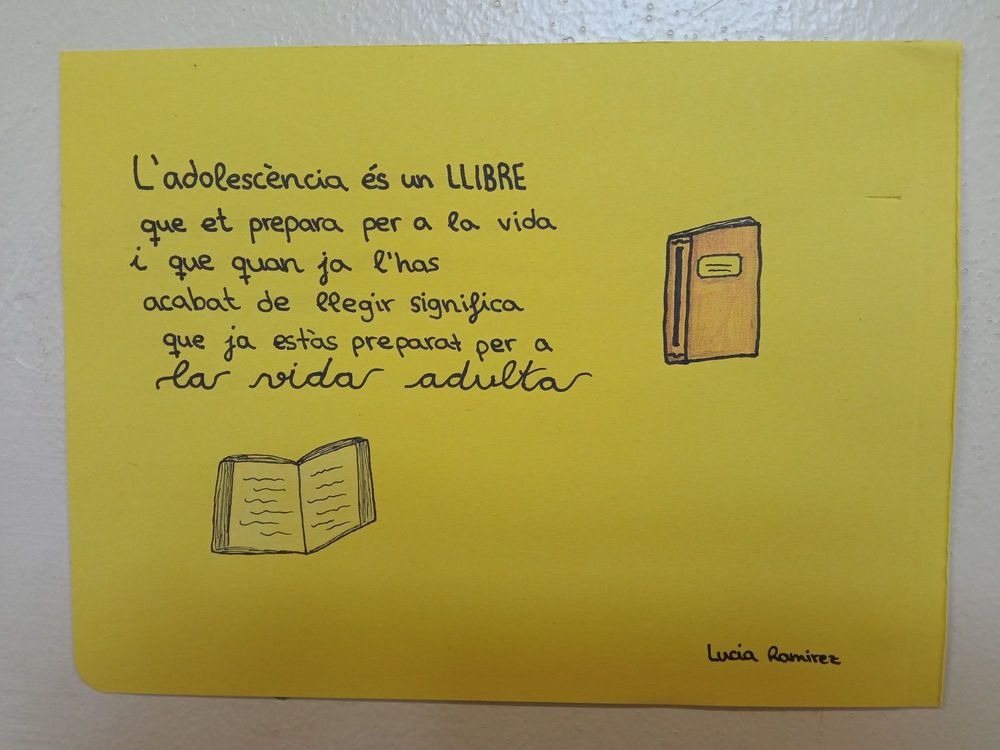 L'adolescència és un LLIBRE
que et prepara per a la vida
i que quan ja l'has
acabat de llegir significa
que ja estàs preparat per a
la vida adulta
Lucia Ramirez